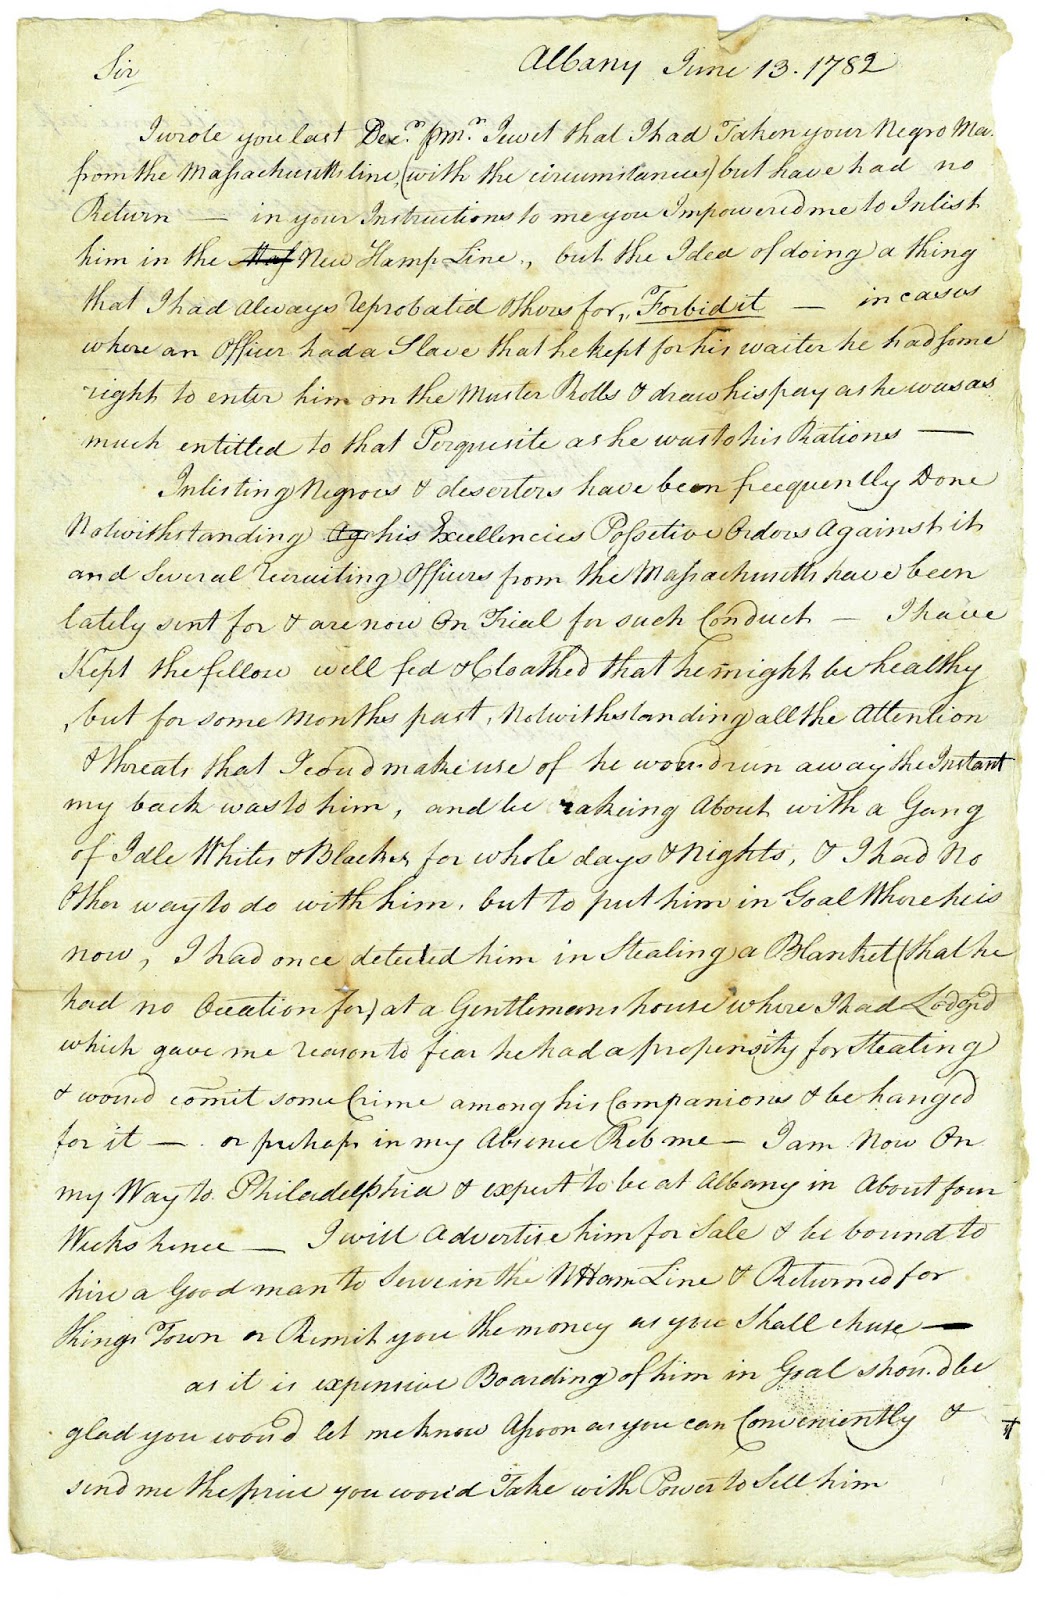 Albany June 13. 1782
Sir
I wrote you last Decr. pr mr. Jewet that I had Taken your Negro Ma
from the Massachusetts line, (with the circumstances) but have had no
Return — in your Instructions to me you Impowered me to Inlist
him in the Mas New Hamp Line, but the Idea of doing a thing
that I had Always reprobated others for, Forbid it — in cases
where an Officer had a Slave that he kept for his waiter he had some
right to enter him on the Muster Rolls & draw his pay as he was as
much entitled to that Perquisite as he was to his Rations —
Inlisting Negroes & deserters have been freequently Done
Notwithstanding Ags his Excellencies Possetive Orders Against it
and Several recruiting Officers from the Massachusetts have been
lately sent for & are now On Trial for such Conduct — I have
Kept the fellow well fed & Cloathed that he might be healthy
, but for some Months past, Notwithstanding all the Attention
& threats that I coud make use of he woud run away the Instant
my back was to him, and be rakeing About with a Gang
of Idle Whites & Blackes for whole days & Nights, & I had No
Other way to do with him, but to put him in Goal Where he is
now, I had once detected him in Stealing a Blanket (that he
had no Occation for) at a Gentlemans house where I had Lodged
which gave me reason to fear he had a propensity for Stealing
& would comit some Crime among his Companions & be hanged
for it — or perhaps in my Absence Rob me — I am Now On
my Way to Philadelphia & expect to be at Albany in About four
Weeks hence — I will Advertise him for Sale & be bound to
hire a Good man to Serve in the N Ham Line & Returned for
Kings Town or Remit you the money as you Shall chuse —
as it is expensive Boarding of him in Goal shoud be
glad you woud let me know Assoon as you can Conveniently &
send me the price you woud Take with Power to Sell him